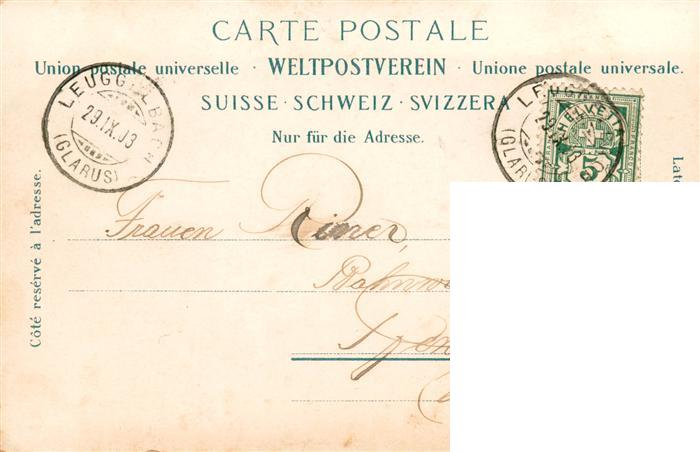 CARTE POSTALE
Union postale universelle · WELTPOSTVEREIN · Unione postale universale.
SUISSE · SCHWEIZ · SVIZZERA
Nur für die Adresse.
LEUGGELBACH
29.IX.03
(GLARUS)
LEUGG
29.IX
(GLARUS
HELVETIA
5
Côté reservé à l'adresse.
Lato
Frauen